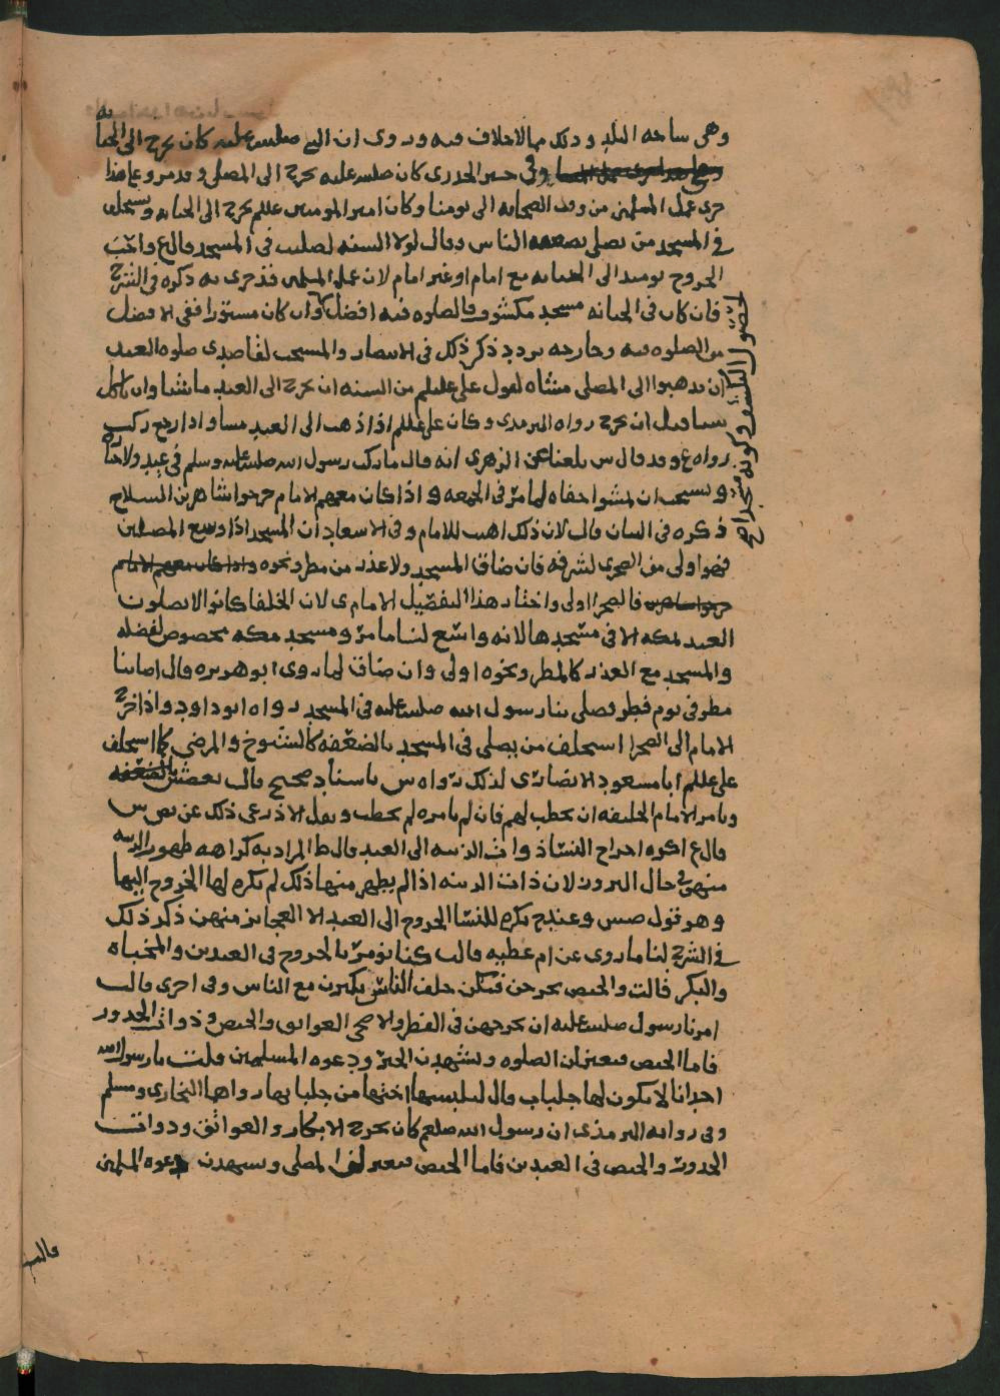 وهي ساحه البلد وذلك مما لا خلاف فيه وروي ان النبي صلى الله عليه كان يخرج الى الجبانه
وفي خبر الخدري كان صلى الله عليه يخرج الى المصلى وقد مر وعلى هذا
جرى عمل المسلمين من وقت الصحابه الى يومنا وكان امير المومنين عليلم يخرج الى الجبانه ويستخلف
في المسجد من يصلي بضعفه الناس وقال لولا السنه لصليت في المسجد قال ع واحب
الخروج يوميد الى الجبانه مع امام او غير امام لان عمل المسلمين قد جرى به ذكره في الشرح
فان كان في الجبانه مسجد مكشوف فالصلوه فيه افضل وان كان مستورا ففي الافضل
من الصلوه فيه وخارجه تردد ذكر ذلك في الانتصار والمستحب لقاصدي صلوه العيد
ان يذهبوا الى المصلى مشاه لقول علي عليلم من السنه ان يخرج الى العيد ماشيا وان ياكل
شيا قبل ان يخرج رواه الترمذي وكان علي عليلم اذا ذهب الى العيد مشا واذا رجع ركب
رواه ع وقد قال س بلغنا عن الزهري انه قال ما ركب رسول الله صلى الله عليه وسلم في عيد ولا جنازه
ويستحب ان يمشوا حفاه لما مر في الجمعه واذا كان معهم الامام خرجوا شاهرين السلاح
ذكره في البيان قال لان ذلك اهيب للامام وفي الاسعاد ان المسجد اذا وسع المصلين
فهو اولى من الصحرى لشرفه فان ضاق المسجد ولا عذر من مطر ونحوه واذا كان معهم الامام
خرجوا شاهرين فالصحرا اولى واختار هذا التفصيل الامام ى لان الخلفا كانوا لا يصلون
العيد بمكه الا في مسجدها لانه واسع لنا ما مر ومسجد مكه مخصوص لفضله
والمسجد مع العذر كالمطر ونحوه اولى وان ضاق لما روى ابو هريره قال اصابنا
مطر في يوم فطر فصلى بنا رسول الله صلى الله عليه في المسجد رواه ابو داود واذا خرج
الامام الى الصحرا استخلف من يصلي في المسجد بالضعفه كالشيوخ والمرضى كما استخلف
علي عليلم ابا مسعود الانصاري لذلك رواه س باسناد صحيح قال بعضش بالضعفه
ويامر الامام الخليفه ان يخطب لهم فان لم يامره لم يخطب ونقل الاذرعي ذلك عن نص س
قال ع اكره اخراج النسا ذوات الزينه الى العيد قال ط المراد به كراهه ظهور الزينه
منهن في حال البروز لان ذات الزينه اذا لم يظهر منها ذلك لم يكره لها الخروج اليها
وهو قول صس وعند ح يكره للنسا الخروج الى العيد الا العجايز منهن ذكر ذلك
في الشرح لنا ما روي عن ام عطيه قالت كنا نومر بالخروج في العيدين والمخباه
والبكر قالت والحيض يخرجن فيكن خلف الناس يكبرن مع الناس وفي اخرى قالت
امرنا رسول صلى الله عليه ان نخرجهن في الفطر والاضحى العواتق والحيض وذوات الخدور
فاما الحيض فيعتزلن الصلوه ويشهدن الخير ودعوه المسلمين قلت يا رسول الله
احدانا لا يكون لها جلباب قال لتلبسها اختها من جلبابها رواهما البخاري ومسلم
وفي روايه الترمذي ان رسول الله صلعم كان يخرج الابكار والعواتق وذوات
الخدور والحيض في العيدين فاما الحيض فيعتزلن المصلى ويشهدن دعوه المسلمين
قالت